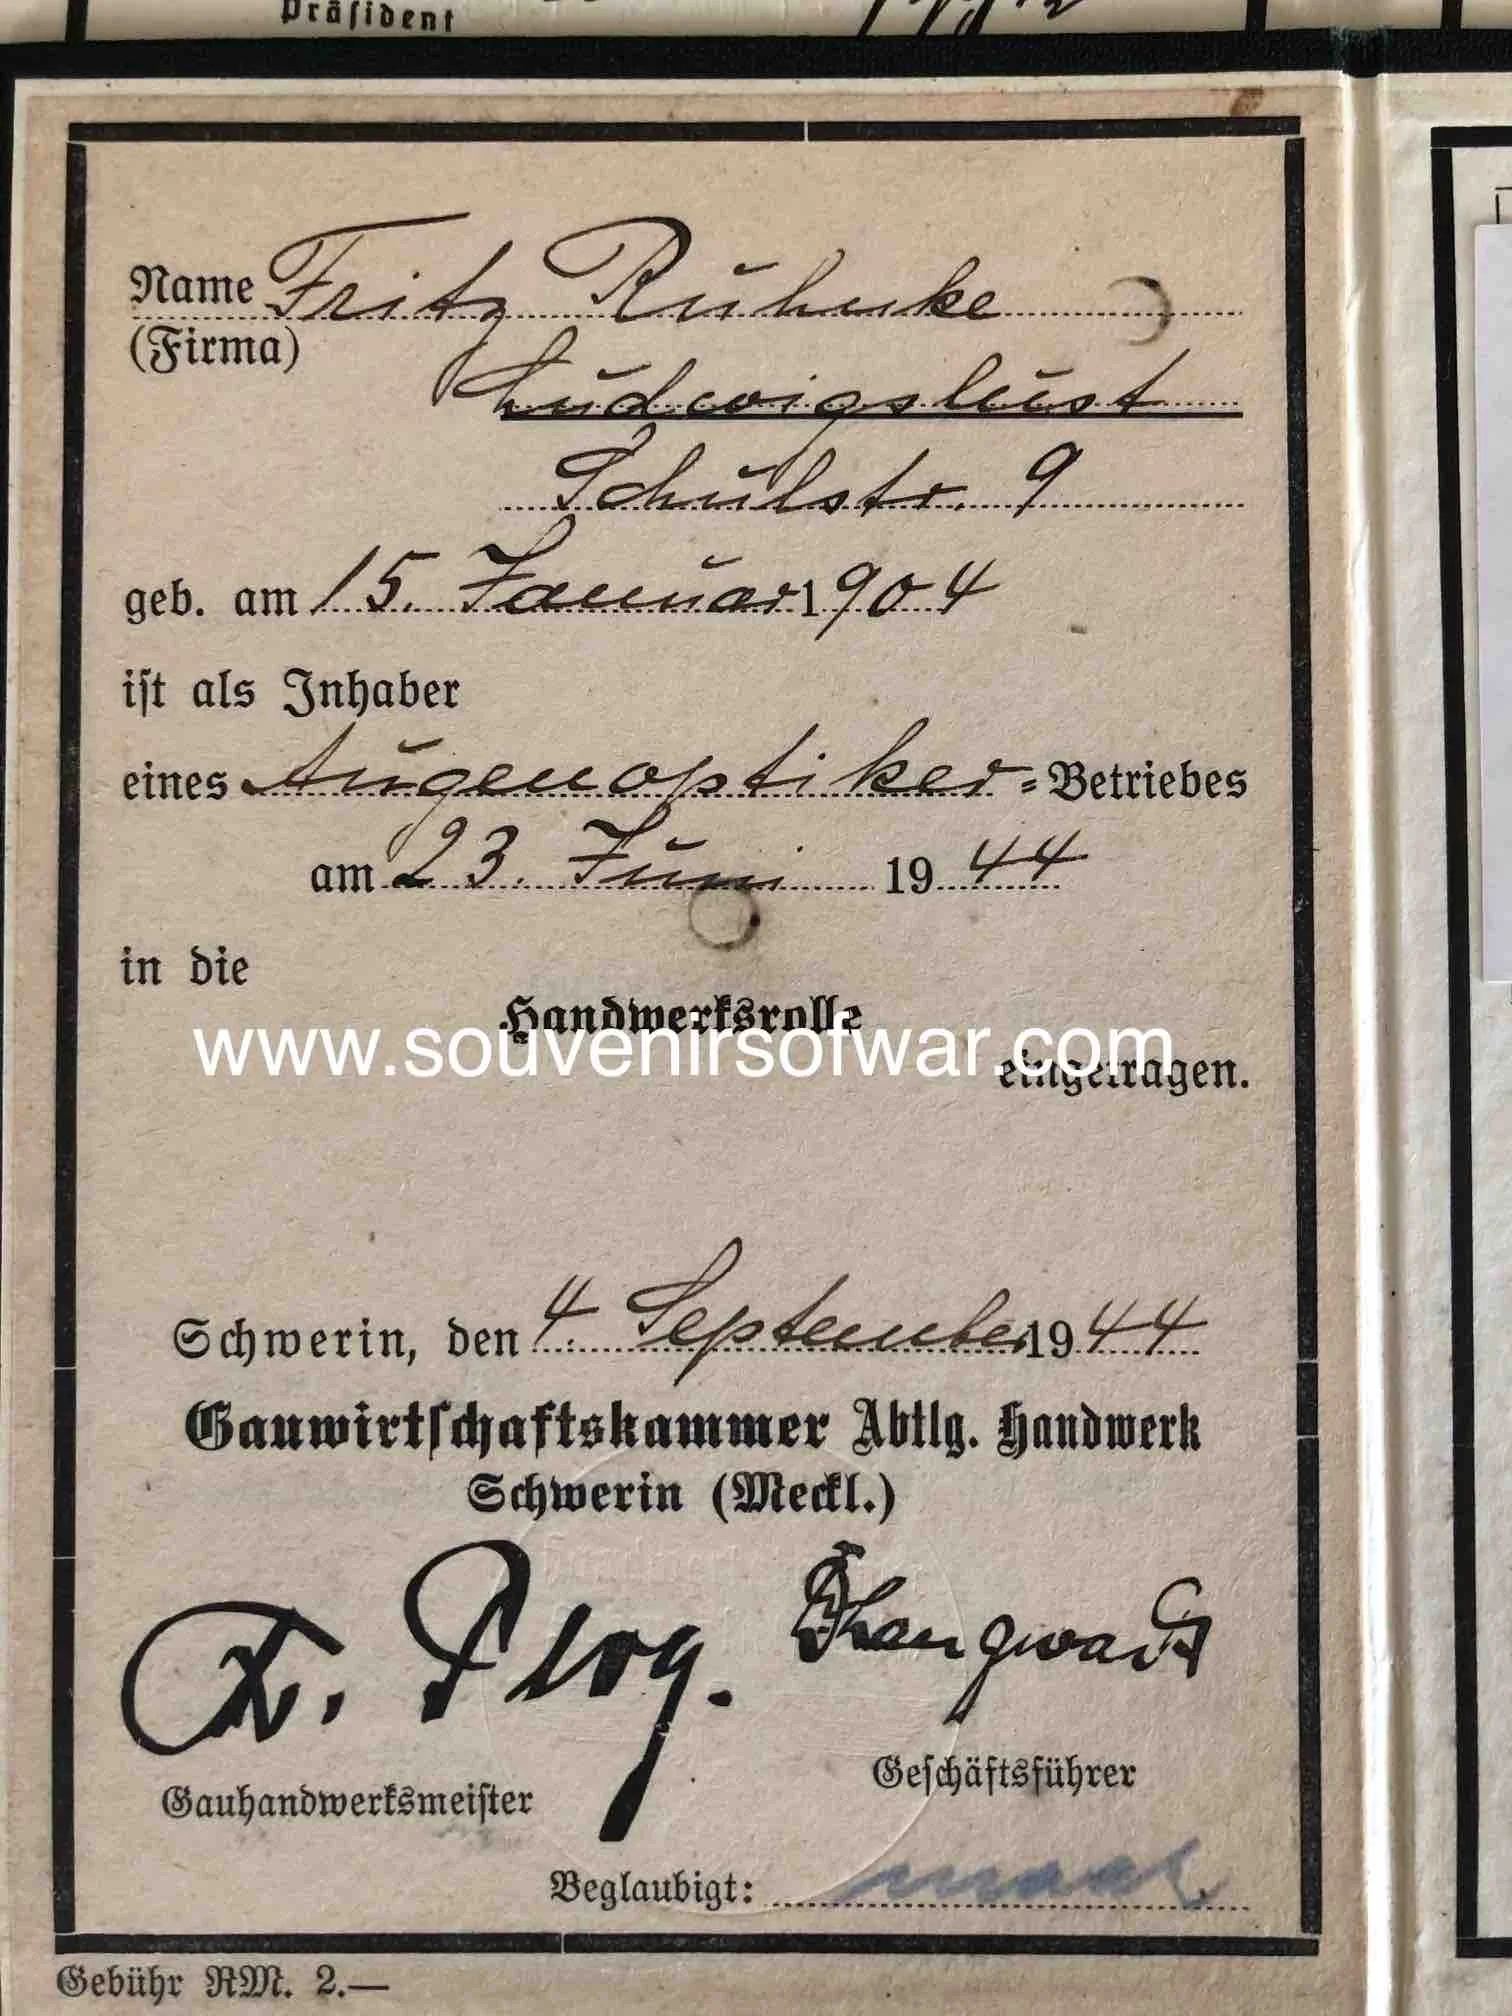 Präsident
Name Fritz Ruhnke
(Firma)
Ludwigslust
Schulstr. 9
geb. am 15. Januar 1904
ist als Inhaber
eines Augenoptiker=Betriebes
am 23. Juni 1944
in die
Handwerksrolle
www.souvenirsofwar.com
eingetragen.
Schwerin, den 4. September 1944
Gauwirtschaftskammer Abtlg. Handwerk
Schwerin (Meckl.)
Gauhandwerksmeister
Geschäftsführer
Beglaubigt:
Gebühr RM. 2.—